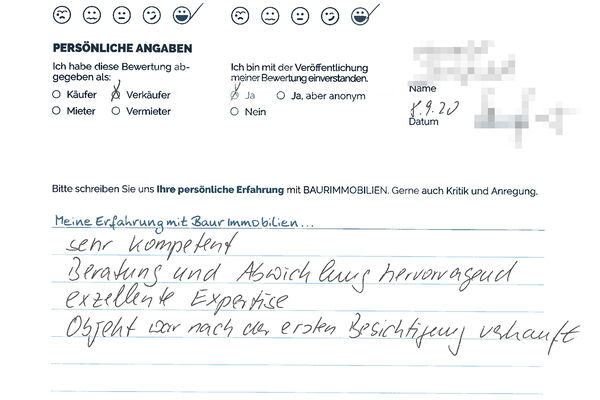 PERSÖNLICHE ANGABEN
Ich habe diese Bewertung ab-
gegeben als:
Käufer Verkäufer
Mieter Vermieter
Ich bin mit der Veröffentlichung
meiner Bewertung einverstanden.
Ja Ja, aber anonym
Nein
Name
8.9.20
Datum
Bitte schreiben Sie uns Ihre persönliche Erfahrung mit BAURIMMOBILIEN. Gerne auch Kritik und Anregung.
Meine Erfahrung mit Baur Immobilien...
sehr kompetent
Beratung und Abwicklung hervorragend
exzellente Expertise
Objekt war nach der ersten Besichtigung verkauft